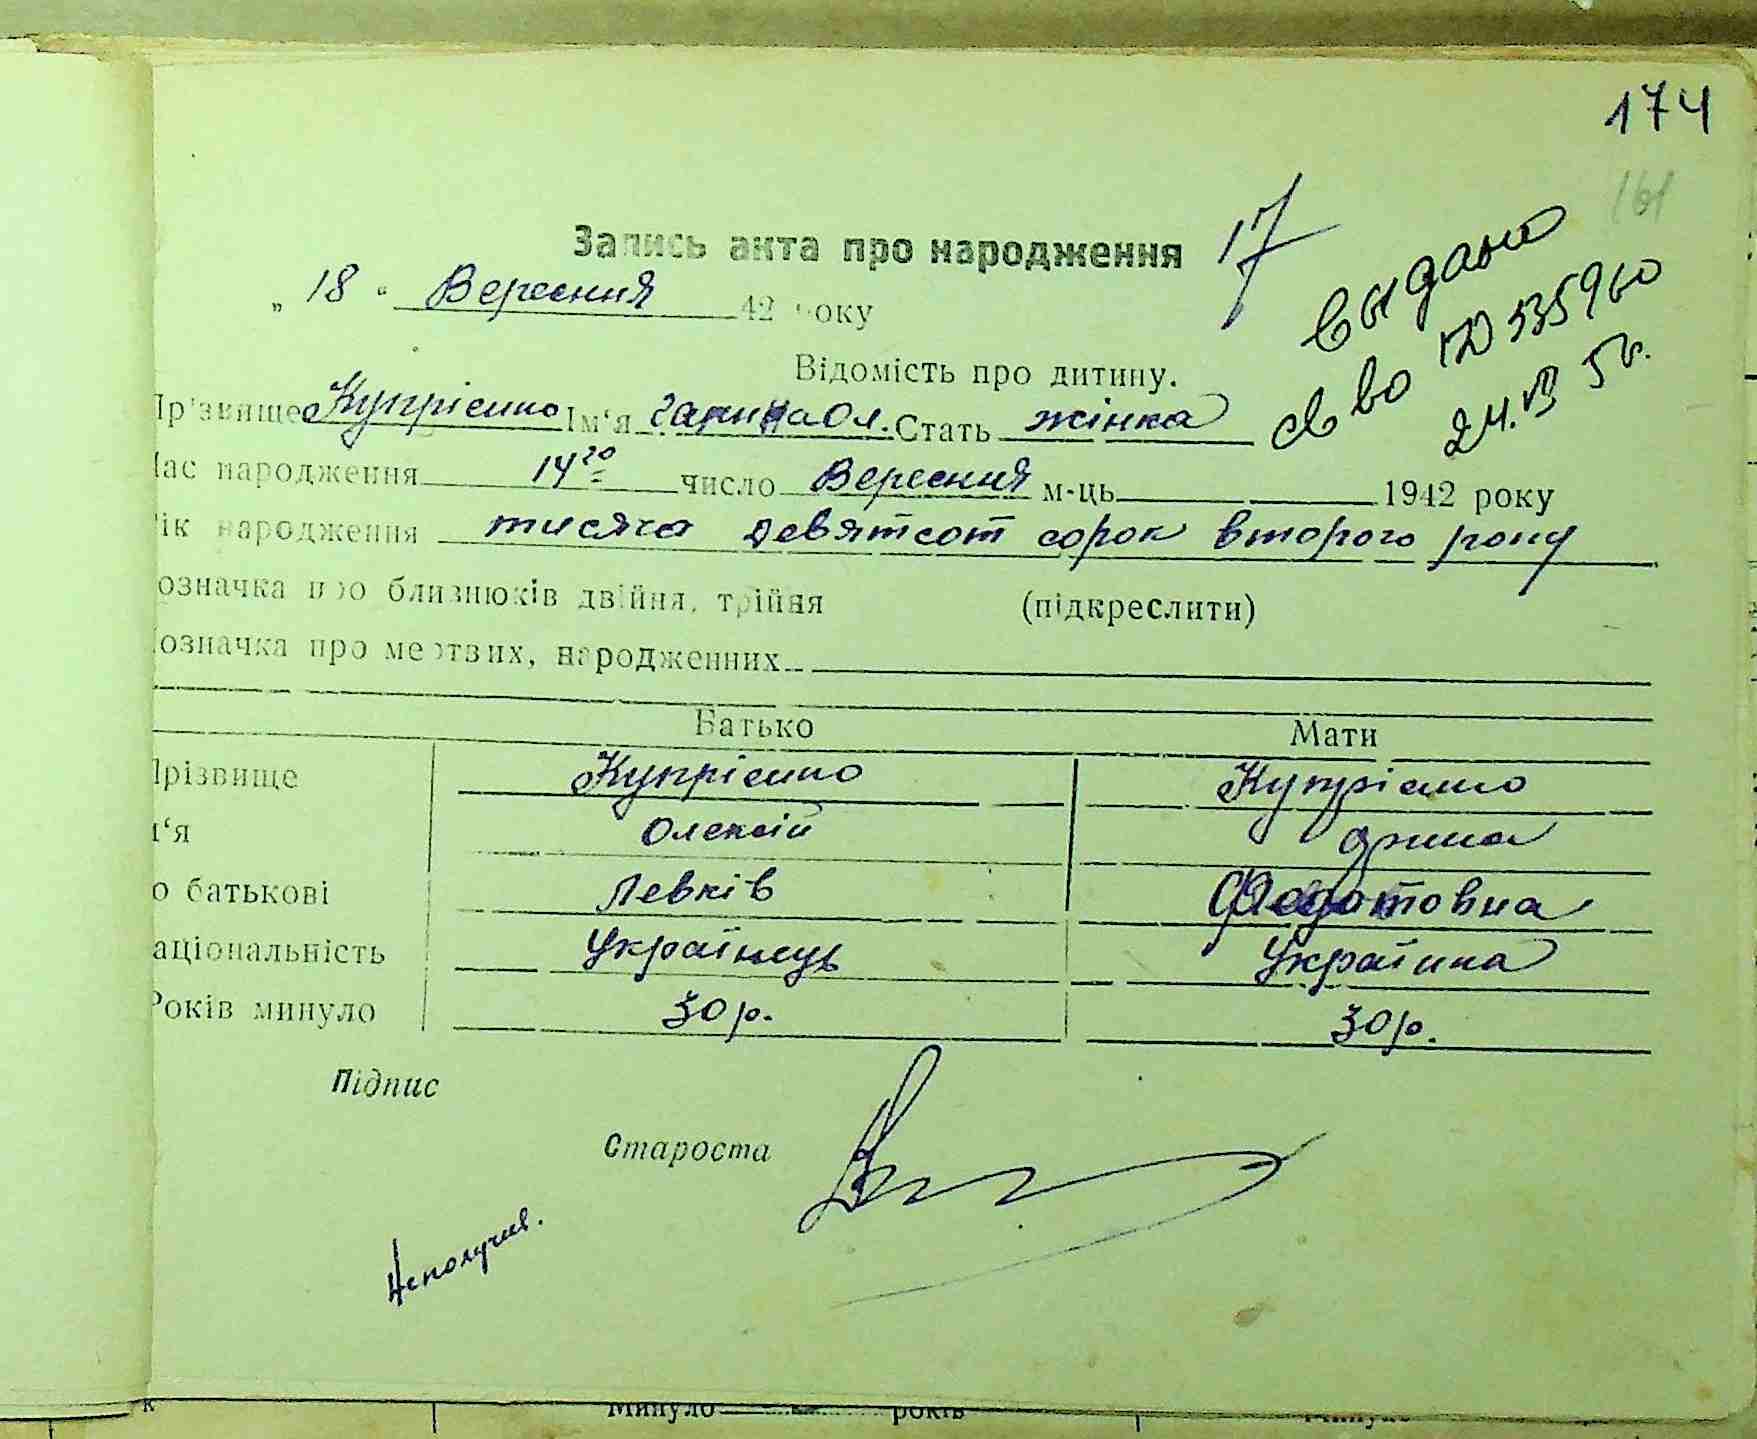 174
161
Запись акта про народження 17
„ 18 “ Вересния 42 року
выдано
св во 535960
24. 5
Відомість про дитину.
Пр'звище Купріенко Ім‘я Галина Ол. Стать жінка
Час народження 14²⁰ число Вересния м-ць 1942 року
Рік народження тисяча девятсот сорок второго року
означка про близнюків двійня, трійня (підкреслити)
означка про мертвих, народженних
Батько Мати
Прізвище Купріенко Купріенко
м‘я Олексій
о батькові Левків Федотовна
аціональність Українець Україпка
Років минуло 30 р. 30 р.
Підпис
Староста
Неполучив.
к Минуло років